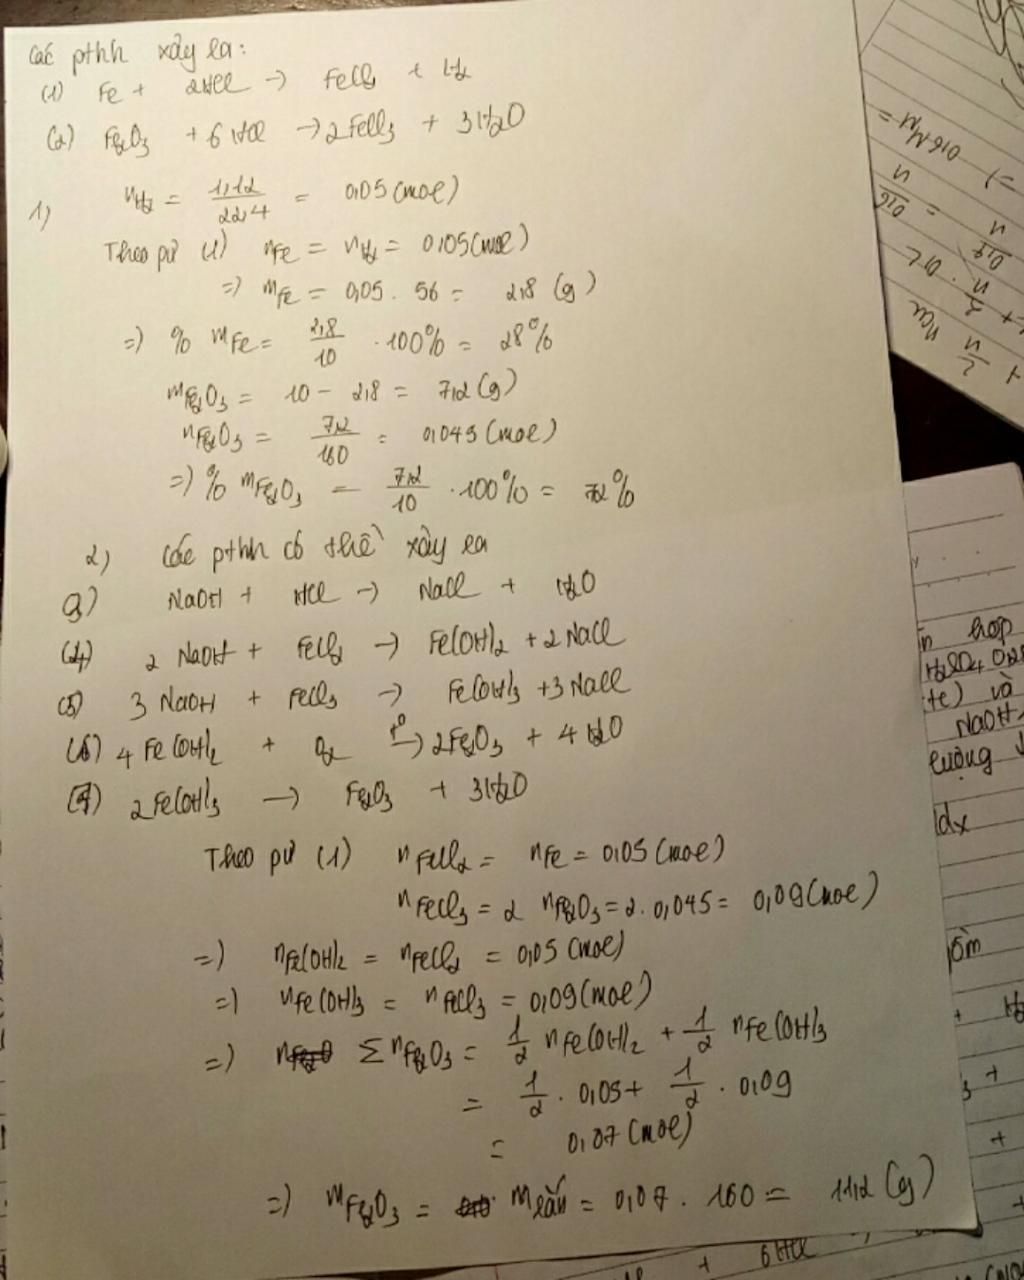 Các pthh xảy ra:
(1) Fe + 2HCl → FeCl2 + H2
(2) Fe2O3 + 6HCl → 2FeCl3 + 3H2O
1) nH2 = 1,12/22,4 = 0,05 (mol)
Theo pư (1) nFe = nH2 = 0,05 (mol)
=) mFe = 0,05 . 56 = 2,8 (g)
=) % mFe = 2,8/10 . 100% = 28%
mFe2O3 = 10 - 2,8 = 7,2 (g)
nFe2O3 = 7,2/160 = 0,045 (mol)
=) % mFe2O3 = 7,2/10 . 100% = 72%
2) Các pthh có thể xảy ra
(3) NaOH + HCl → NaCl + H2O
(4) 2 NaOH + FeCl2 → Fe(OH)2 + 2 NaCl
(5) 3 NaOH + FeCl3 → Fe(OH)3 + 3 NaCl
(6) 4 Fe(OH)2 + O2 t° → 2Fe2O3 + 4 H2O
(7) 2 Fe(OH)3 → Fe2O3 + 3H2O
Theo pư (1) nFeCl2 = nFe = 0,05 (mol)
nFeCl3 = 2 nFe2O3 = 2. 0,045 = 0,09 (mol)
=) nFe(OH)2 = nFeCl2 = 0,05 (mol)
=) nFe(OH)3 = nFeCl3 = 0,09 (mol)
=) Σ nFe2O3 = 1/2 nFe(OH)2 + 1/2 nFe(OH)3
= 1/2 . 0,05 + 1/2 . 0,09
= 0,07 (mol)
=) mFe2O3 = m rắn = 0,07 . 160 = 11,2 (g)
hợp
H2SO4
và
NaOH
lượng ↓
dx
+ 6 HCl